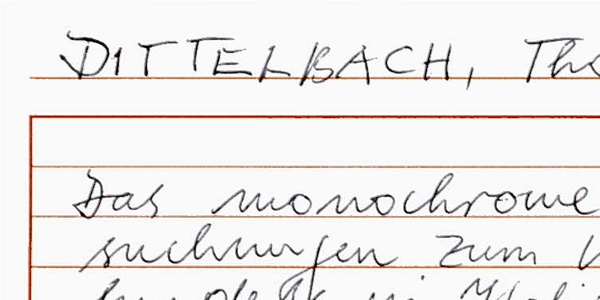 DITTELBACH, Tho
Das monochrome
suchungen zum